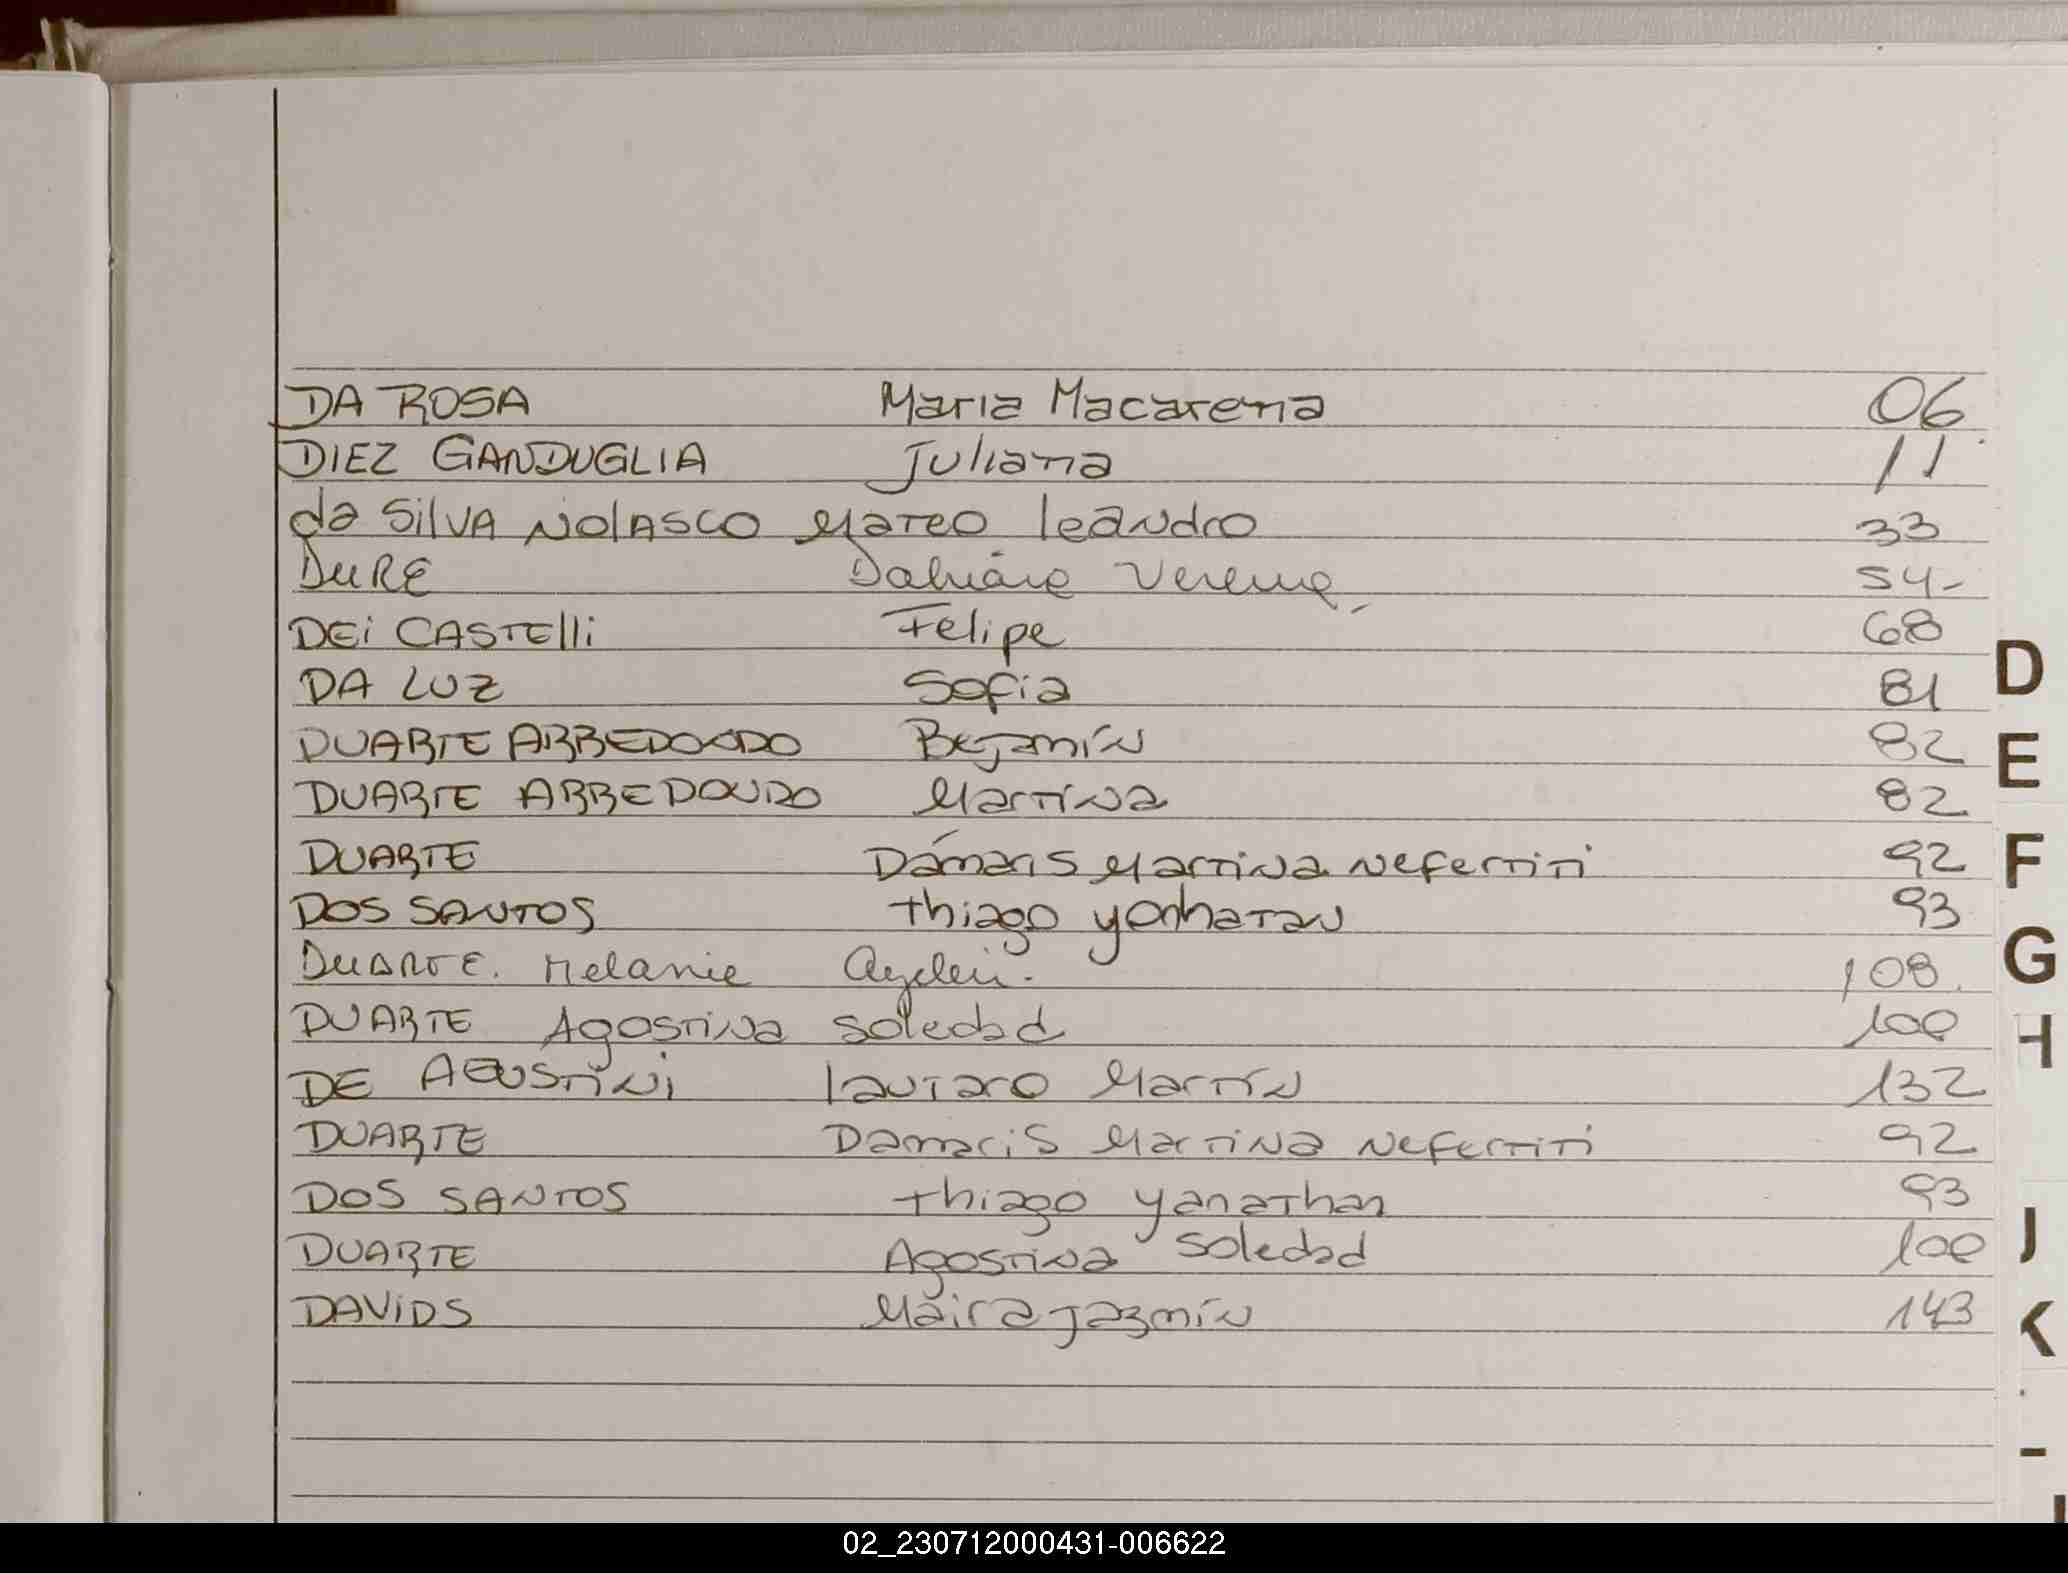 DA ROSA Maria Macarena 06
DIEZ GANDUGLIA Juliana 11
da SilVA NolASCO Mateo leandro 33
DURE Verena 54-
DEi CASTElli Felipe 68
DA LUZ Sofia 81
DUARTE ARREDONDO Bejamín 82
DUARTE ARREDONDO Martina 82
DUARTE Dámaris Martina Nefertiti 92
DOS SANTOS Thiago yonhatan 93
DUARTE. Melanie Ayelen. 108.
DUARTE Agostina Soledad 100
DE AGUSTiNi lautaro Martín 132
DUARTE Damaris Martina Nefertiti 92
DOS SANTOS Thiago yanathan 93
DUARTE Agostina Soledad 100
DAViDS Maira Jazmín 143
D
E
F
G
H
J
K
02_230712000431-006622